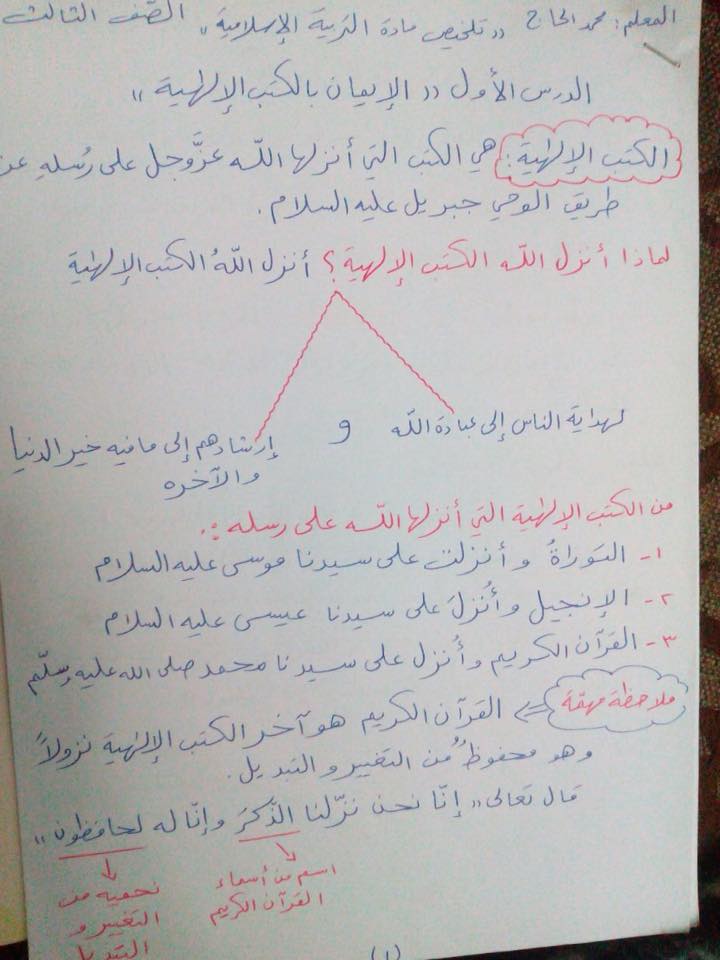 المعلم: محمد الحاج «تلخيص مادة التربية الإسلامية» الصّف الثالث
الدرس الأول «الإيمان بالكتب الإلهية»
الكتب الإلهية: هي الكتب التي أنزلها اللّه عزَّوجل على رُسلهِ عن
طريق الوحي جبريل عليه السلام.
لماذا أنزل اللّه الكتب الإلهية؟ أنزل اللّهُ الكتب الإلهية
لهداية الناس إلى عبادة اللّه و إرشادهم إلى ما فيه خير الدنيا
والآخره
من الكتب الإلهية التي أنزلها اللّه على رسله:.
١- التوراةُ وأنزلت على سيدنا موسى عليه السلام
٢- الإنجيل وأُنزلَ على سيدنا عيسى عليه السلام
٣- القرآن الكريم وأُنزل على سيدنا محمد صلى الله عليه وسلّم
ملاحظة مهمّة ⇐ القرآن الكريم هو آخر الكتب الإلهية نزولاً
وهو محفوظٌ من التغير و التبديل.
قال تعالى «إنّا نحن نزّلنا الذّكرَ وإنّا له لحافظون»
اسم من أسماء
القرآن الكريم
نحميه من
التغيير و
التبديل
(١)